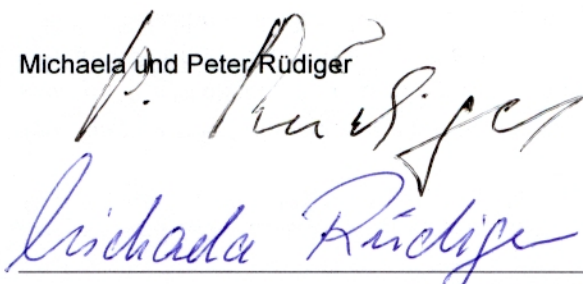 Michaela und Peter Rüdiger
P. Rüdiger
Michaela Rüdiger